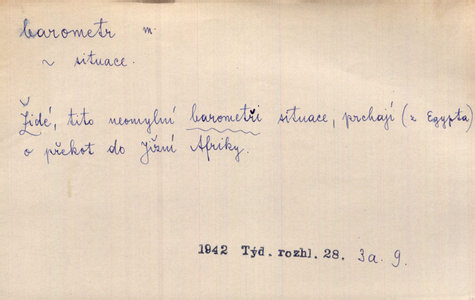 barometr m.
~ situace.
Židé, tito neomylní barometři situace, prchají (z Egypta)
o překot do Jižní Afriky.
1942 Týd. rozhl. 28. 3a. 9.